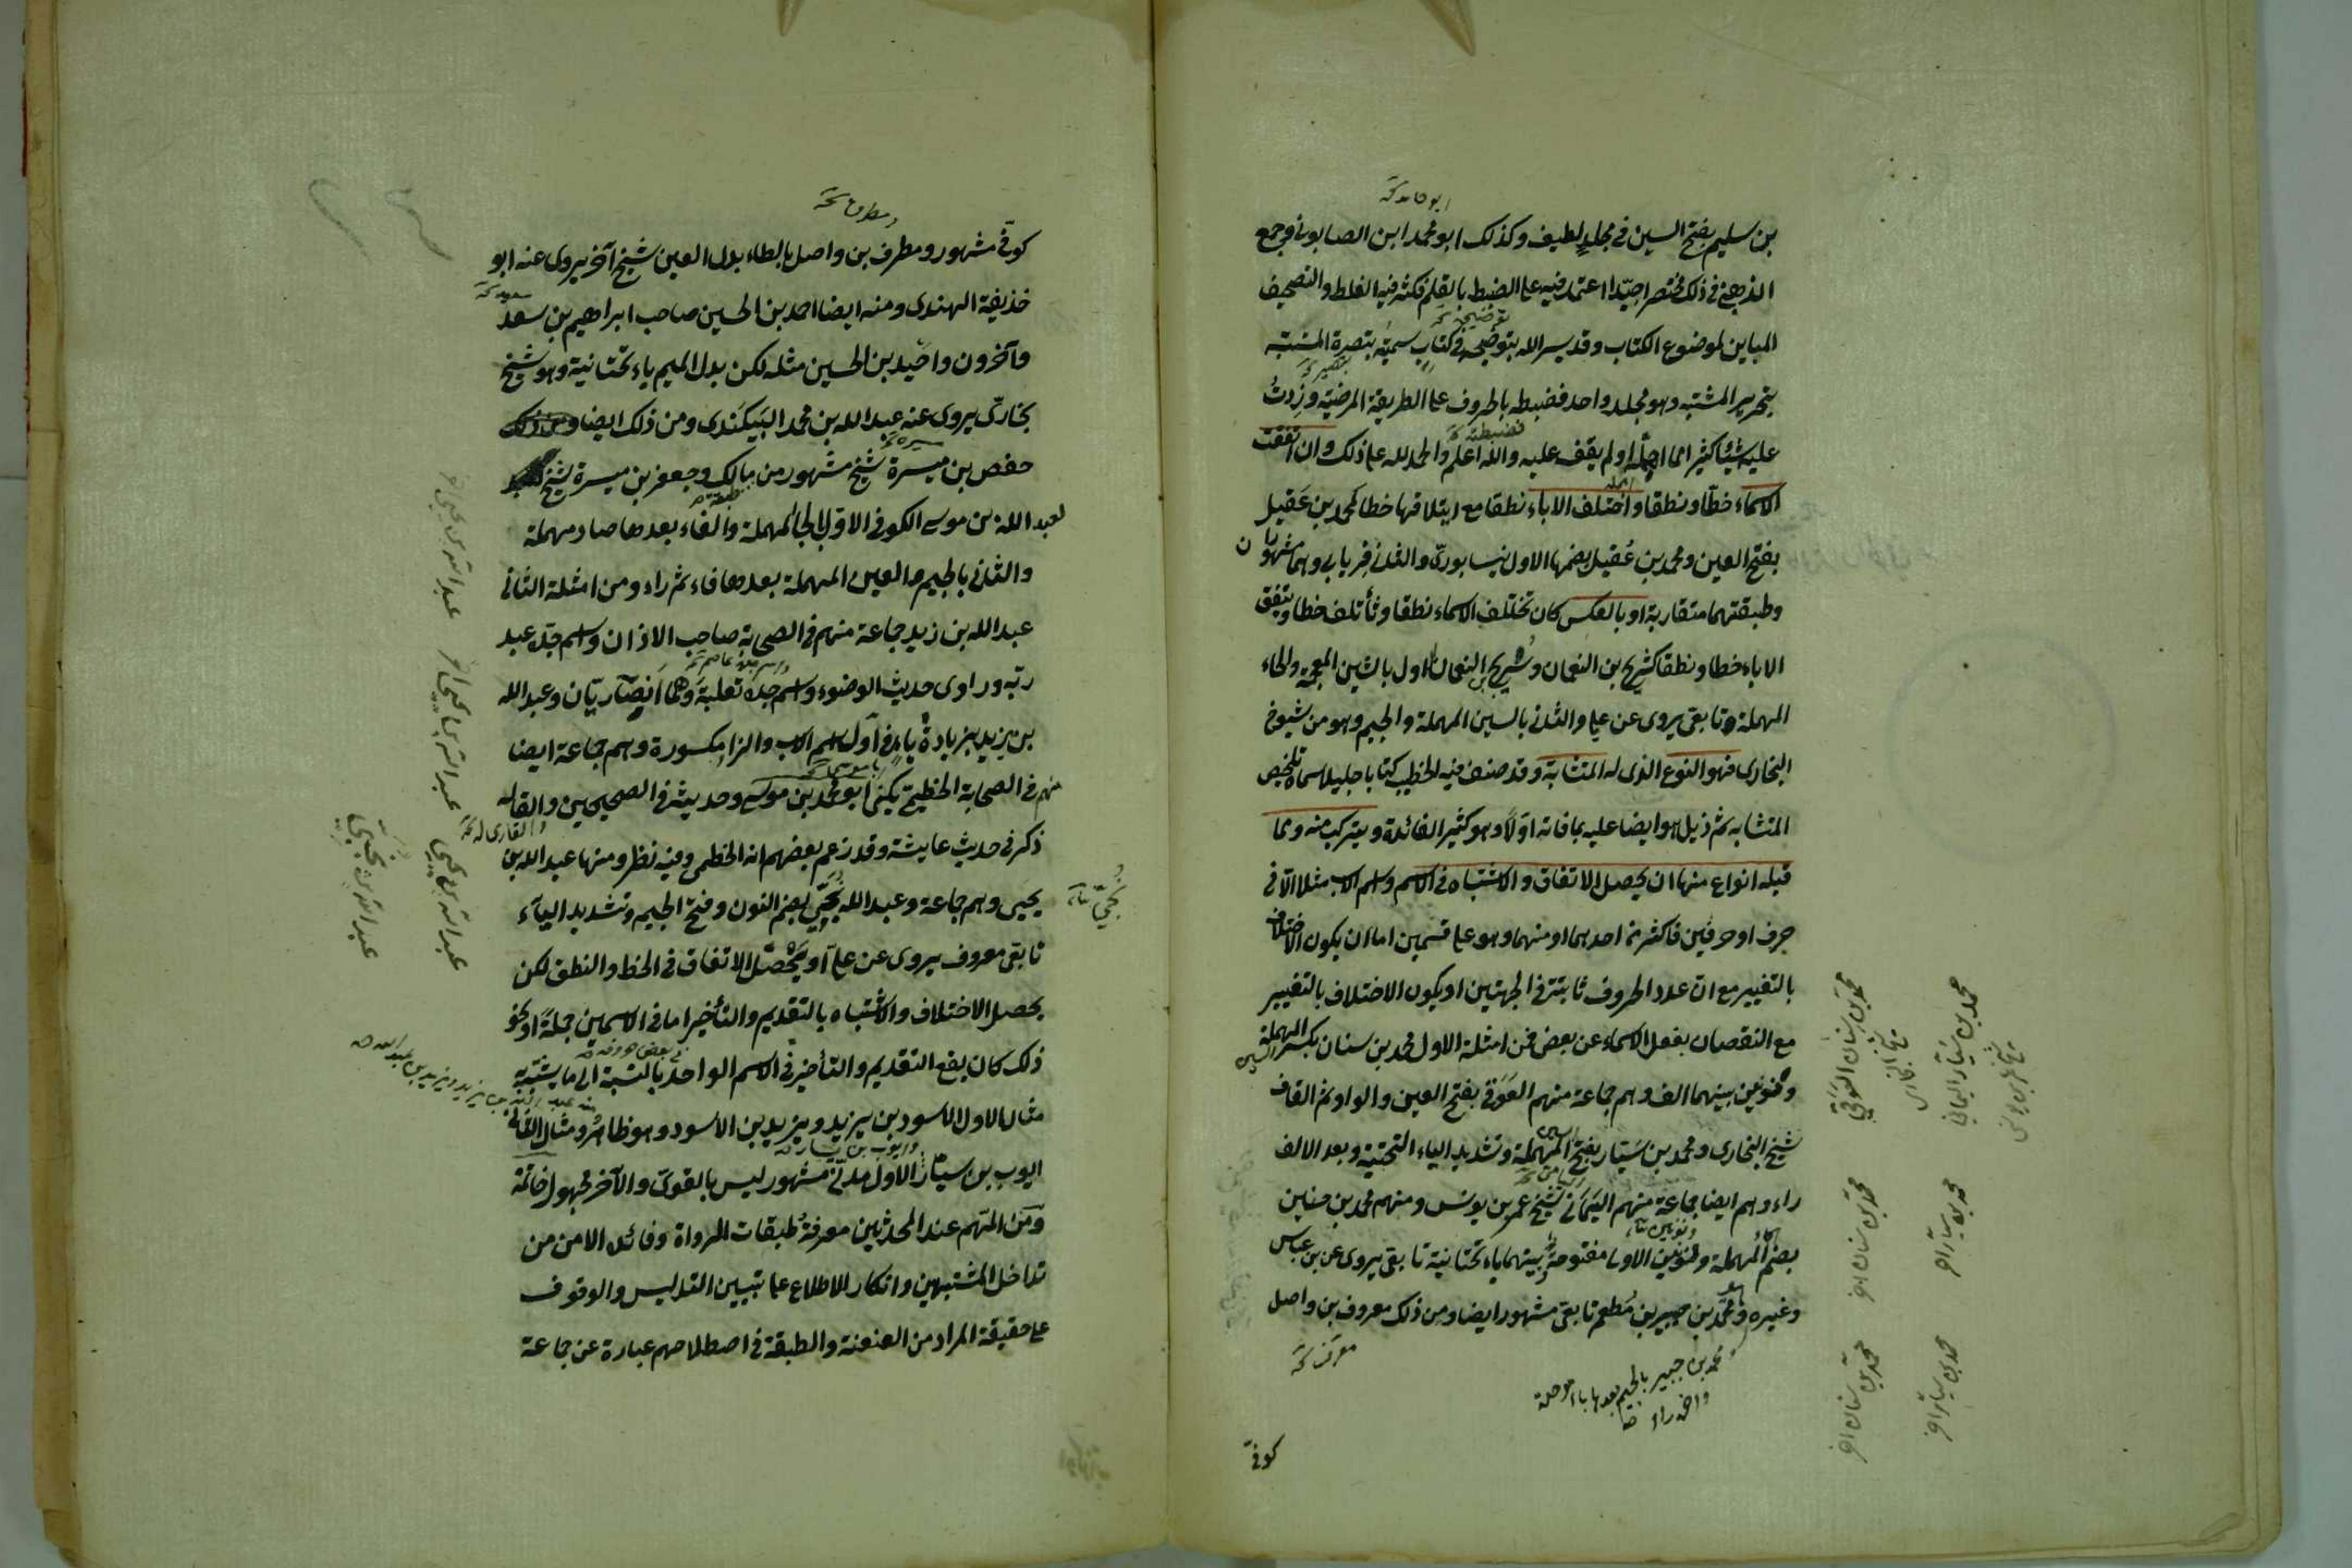 ابو حامد نخـ
بن سليم بفتح السين في مجلد لطيف وكذلك ابو محمد ابن الصابوني وجمع
الذهبي في ذلك مختصرا جدا اعتمد فيه على الضبط بالقلم فكثر فيه الغلط والتصحيف
المباين لموضوع الكتاب وقد يسر الله بتوضيحه في كتاب سميته بتبصرة المنتبه
بتحرير المشتبه وهو مجلد واحد فضبطه بالحروف على الطريقة المرضية وزدت
عليه شيئا كثيرا مما اهمله او لم يقف عليه والله اعلم والحمد لله على ذلك وان اتفقت
الاسماء خطا ونطقا واختلف الاباء نطقا مع ايتلافها خطا كمحمد بن عَقيل
بفتح العين ومحمد بن عُقيل بضمها الاول نيسابوري والثاني فريابي وهما مشهوران
وطبقتهما متقاربة او بالعكس كان تختلف الاسماء نطقا وتأتلف خطا ويتفق
الاباء خطا ونطقا كشريح بن النعمان وسريج بن النعمان الاول بالشين المعجمة والحاء
المهملة وتابعي يروي عن علي والثاني بالسين المهملة والجيم وهو من شيوخ
البخاري فهو النوع الذي له المتشابه وقد صنف فيه الخطيب كتابا جليلا سماه تلخيص
المتشابه ثم ذيل هو ايضا عليه بما فاته اوّلاً وهو كثير الفائدة ويتركب منه ومما
قبله انواع منها ان يحصل الاتفاق والاشتباه في الاسم واسم الاب مثلا الا في
حرف او حرفين فاكثر من احدهما او منهما وهو على قسمين اما ان يكون الاختلاف
بالتغيير مع ان عدد الحروف ثابتة في الجهتين او يكون الاختلاف بالتغيير
مع النقصان بفعل الاسماء عن بعض فمن امثلة الاول محمد بن سنان بكسر السين المهملة
ونونين بينهما الف وهم جماعة منهم العَوَقي بفتح العين والواو ثم القاف
شيخ البخاري ومحمد بن سَيّار بفتح السين المهملة وتشديد الياء التحتية وبعد الالف
راء وهم ايضا جماعة منهم اليَمَاني شيخ عمر بن يونس ومنهم محمد بن حنين
بضم الحاء المهملة ونونين الاولى مفتوحة بينهما ياء تحتانية تابعي يروي عن بن عباس
وغيره ومحمد بن جبير بن مُطعم تابعي مشهور ايضا ومن ذلك معروف بن واصل
محمد بن جبير بالجيم بعدها باء موحدة
واخره راء
كوفي
محمد بن سنان العَوَقي
شيخ البخاري
محمد بن سَيّار اليماني
شيخ عمر بن يونس
محمد بن سنان اخر
محمد بن سيار اخر
محمد بن سنان اخر
محمد بن سيار اخر
ومطرف نخـ
كوفي مشهور ومطرف بن واصل بالطاء بدل العين شيخ آخر يروي عنه ابو
حذيفة النهدي ومنه ايضا احمد بن الحسين صاحب ابراهيم بن سعد
وآخرون واحيد بن الحسين مثله لكن بدل الميم ياء تحتانية وهو شيخ
بخاري يروي عنه عبد الله بن محمد البيكندي ومن ذلك ايضا
حفص بن ميسرة شيخ مشهور من مالك وجعفر بن ميسرة شيخ
لعبد الله بن موسى الكوفي الاول بالحاء المهملة والفاء بعدها صاد مهملة
والثاني بالجيم والعين المهملة بعدها فاء ثم راء ومن امثلة الثاني
عبد الله بن زيد جماعة منهم في الصحابة صاحب الاذان واسم جده عبد
ربه وراوي حديث الوضوء واسم جده ثعلبة وهما انصاريان وعبد الله
بن يزيد بزيادة ياء في اول اسم الاب والزاء مكسورة وهم جماعة ايضا
منهم في الصحابة الخطمي يكنى ابو محمد بن موسى وحديثه في الصحيحين والقاله
ذكر في حديث عايشة وقد زعم بعضهم انه الخطمي وفيه نظر ومنها عبد الله بن
يحيى وهم جماعة وعبد الله بن نُجَيّ بضم النون وفتح الجيم وتشديد الياء
تابعي معروف يروي عن علي او يحصل الاتفاق في الخط والنطق لكن
يحصل الاختلاف والاشتباه بالتقديم والتأخير اما في الاسمين جملة او نحو
ذلك كان يقع التقديم والتأخير في الاسم الواحد بالنسبة الى ما يشتبه
مثال الاول الاسود بن يزيد ويزيد بن الاسود وهو ظاهر ومثال الثاني
ايوب بن سيار الاول مدني مشهور ليس بالقوي والآخر مجهول خاتمة
ومن المهم عند المحدثين معرفة طبقات الرواة وفائدته الامن من
تداخل المشتبهين وامكان الاطلاع على تبيين التدليس والوقوف
على حقيقة المراد من العنعنة والطبقة في اصطلاحهم عبارة عن جماعة
عبد الله بن يحيى اخر
عبد الله بن يحيى اخر
عبد الله بن يحيى
عبد الله بن نجي